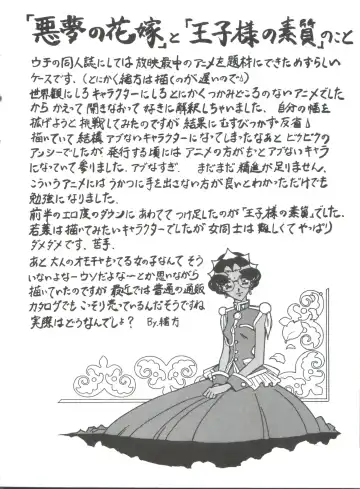 「悪夢の花嫁」と「王子様の素質」のこと
ウチの同人誌にしては放映最中のアニメを題材にできためずらしい
ケースです。(とにかく緒方は描くのが遅いので)
世界観にしろキャラクターにしろとにかくつかみどころのないアニメでした
から かえって開きなおって好きに解釈しちゃいました。自分の幅を
拡げようと挑戦してみたのですが結果にもすびつかず反省」
描いていて結構アブないキャラクターになってしまったなあとビクビクの
アンシーでしたが発行する頃にはアニメの方がもっとアブないキャラ
になっていて参りました。アブなすぎ. まだまだ精進が足りません。
こういうアニメにはうかつに手を出さない方が良いとわかっただけでも
勉強になりました。
前半のエロ度のダウンに あわてて つけ足したのが「王子様の素質」でした.
若葉は描いてみたいキャラクターでしたが女同士は難しくてやっぱり
ダメダメです。苦手.
あと大人のオモチャもってる女の子なんて そう
いないよなーウソだよなーとか思いながら
描いていたのですが最近では普通の通販
カタログでも こっそり売っているんだそうですね
実際はどうなんでしょ? By.緒方